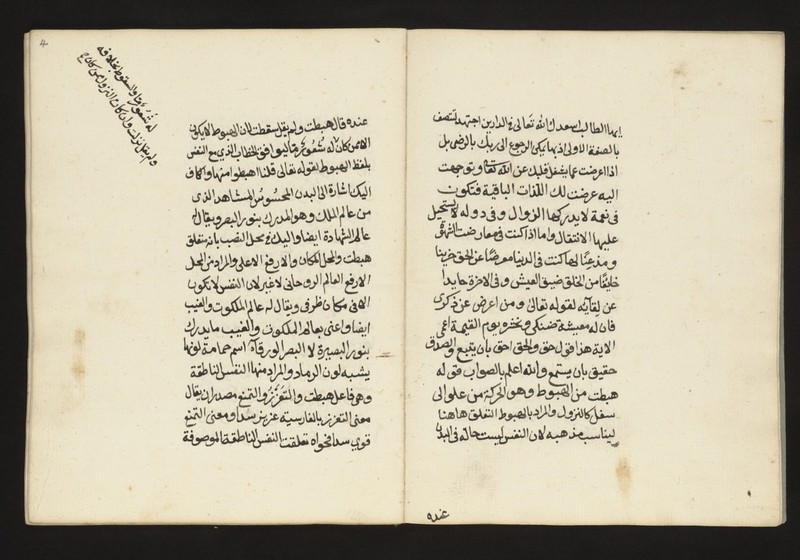 ايها الطالب اسعدك الله تعالى في الدارين اجتهد لتتصف
بالصفة الاولى اذ بها يمكن الرجوع الى ربك بالرضى بل
اذا اعرضت عما يشغل قلبك عن الله تعالى وتوجهت
اليه عرضت لك اللذات الباقية فتكون
في نعمة لا يدركها الزوال وفي دولة لا يستحيل
عليها الانتقال واما اذا كنت في معارضت الشهوة
ومذعنا لها كنت في الدنيا معرضا عن الحق حزينا
خايفا من الخلق ضيق العيش وفي الاخرة حايدا
عن لقايه لقوله تعالى ومن اعرض عن ذكري
فان له معيشة ضنكى ونحشره يوم القيمة اعمى
الاية هذا قول حق والحق احق بان يتبع والصدق
حقيق بان يستمع والله اعلم بالصواب قوله
هبطت من الهبوط وهو الحركة من علو الى
سفل كالنزول والمراد بالهبوط التعلق هاهنا
ليناسب مذهبه لان النفس ليست حالة في البدن
عنده
4
عنده قال هبطت ولم يقل سقطت لان الهبوط لا يكون
الا ممن كان له شعور ليوافق الخطاب الذي مع النفس
بلفظ الهبوط لقوله تعالى قلنا اهبطوا منها والكاف
اليك اشارة الى البدن المحسوس المشاهد الذي
من عالم الملك وهو المدرك بنور البصر ويقال له
عالم الشهادة ايضا واليك في محل النصب بانه متعلق
هبطت والمحل المكان والارفع الاعلى والمراد من المحل
الارفع العالم الروحاني لا غير لان النفس لا تكون
الا في مكان ظرفي ويقال له عالم الملكوت والغيب
ايضا واعنى بعالم الملكوت والغيب ما يدرك
بنور البصيرة لا البصر الورقاء اسم حمامة لونها
يشبه لون الرماد والمراد منها النفس الناطقة
وهو فاعل هبطت والتعزز والتمنع مصدران يقال
معنى التعزز بالفارسية عزيز شد ومعنى التمنع
قوي شد فحواه تعلقت النفس الناطقة الموصوفة
له شعور والسقوط بخلافه
ولم يقل نزلت وان كان النزول ممن كان